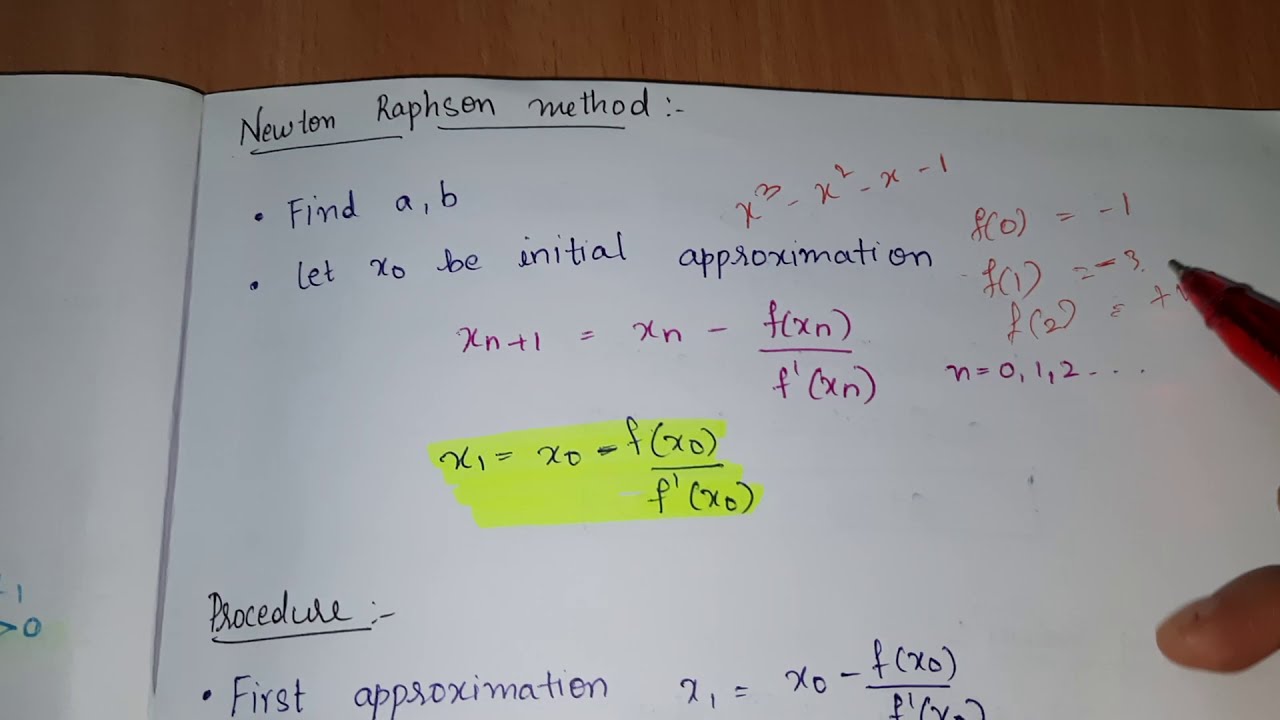 Newton Raphson method :-
• Find a, b
x³ - x² - x - 1
f(0) = -1
• Let x₀ be initial approximation
f(1) = -3.
f(2) = +
xₙ₊₁ = xₙ - f(xₙ)/f'(xₙ)
n = 0, 1, 2 - - - .
x₁ = x₀ - f(x₀)/f'(x₀)
1
>0
Procedure :-
• First approximation x₁ = x₀ - f(x₀)/f'(x₀)